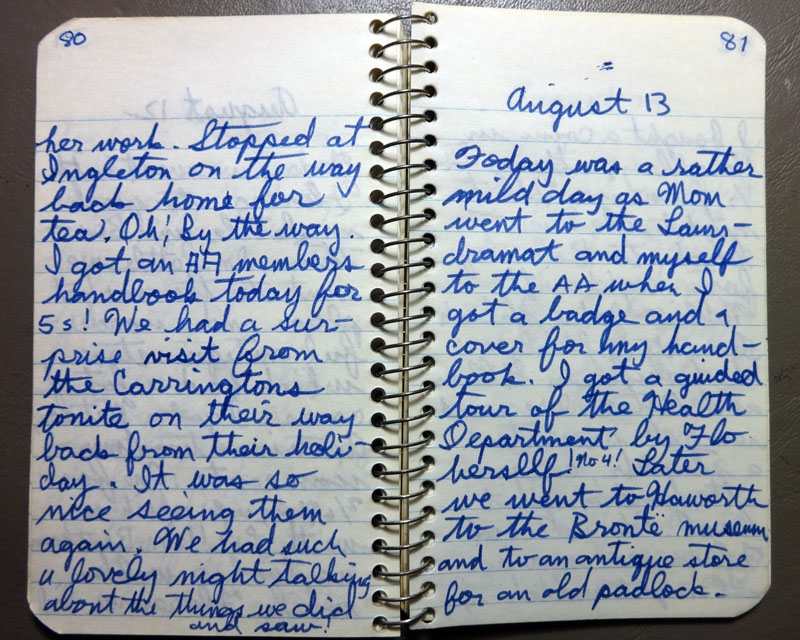 80
her work. Stopped at
Ingleton on the way
back home for
tea. Oh! By the way.
I got an AA members
handbook today for
5s! We had a sur-
prise visit from
the Carringtons
tonite on their way
back from their holi-
day. It was so
nice seeing them
again. We had such
a lovely night talking
about the things we did
and saw!
81
August 13
Today was a rather
mild day as Mom
went to the Laun-
dramat and myself
to the AA when I
got a badge and a
cover for my hand-
book. I got a guided
tour of the Health
Department by Flo
herself! No 4! Later
we went to Haworth
to the Brontë museum
and to an antique store
for an old padlock.